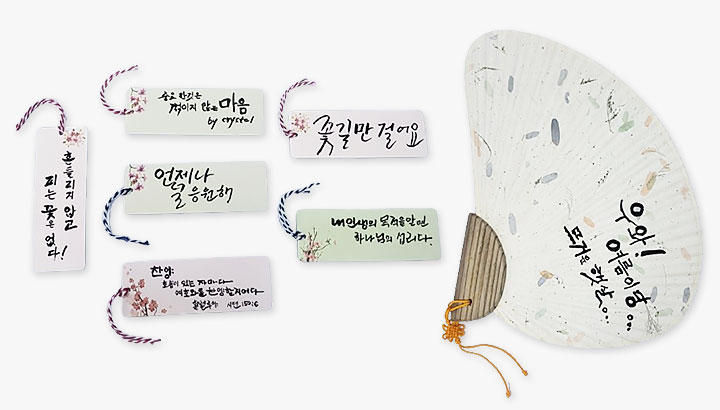 흔들리지 않고
피는 꽃은 없다!
적이지 않는 마음
by crystal
꽃길만 걸어요
언제나
널 응원해
내 인생의 목적을 알면
하나님의 섭리다.
찬양:
호흡이 있는 자마다
여호와를 찬양할지어다
시편 150:6
우와!
여름이당...
뜨거운 햇살...